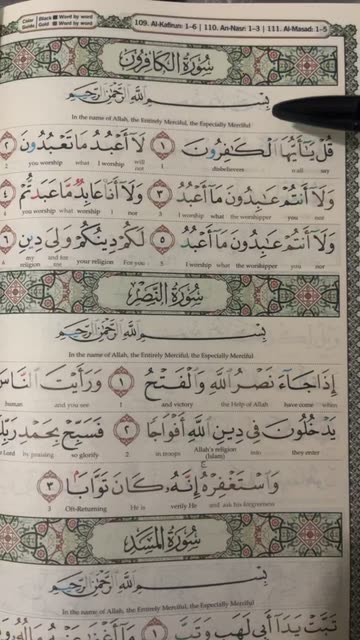 Color Guide: Black Word by word Gold Word by word 109. Al-Kafirun: 1-6 | 110. An-Nasr: 1-3 | 111. Al-Masad: 1-5
سُورَةُ الْكَافِرُونَ
بِسْمِ اللَّهِ الرَّحْمَٰنِ الرَّحِيمِ
In the name of Allah, the Entirely Merciful, the Especially Merciful
قُلْ يَٰٓأَيُّهَا ٱلْكَٰفِرُونَ ١ لَآ أَعْبُدُ مَا تَعْبُدُونَ ٢
2 you worship what I worship will not 1 disbelievers say
وَلَآ أَنتُمْ عَٰبِدُونَ مَآ أَعْبُدُ ٣ وَلَآ أَنَا۠ عَابِدٌ مَّا عَبَدتُّمْ ٤
you worship what I nor 3 I worship what the worshipper you nor
وَلَآ أَنتُمْ عَٰبِدُونَ مَآ أَعْبُدُ ٥ لَكُمْ دِينُكُمْ وَلِىَ دِينِ ٦
6 my religion and for me your religion For you 5 I worship what the worshipper you nor
سُورَةُ النَّصْرِ
بِسْمِ اللَّهِ الرَّحْمَٰنِ الرَّحِيمِ
In the name of Allah, the Entirely Merciful, the Especially Merciful
إِذَا جَآءَ نَصْرُ ٱللَّهِ وَٱلْفَتْحُ ١ وَرَأَيْتَ ٱلنَّاسَ
human and you see 1 and victory the Help of Allah have come when
يَدْخُلُونَ فِى دِينِ ٱللَّهِ أَفْوَاجًا ٢ فَسَبِّحْ بِحَمْدِ رَبِّكَ
Lord by praising so glorify 2 in troops Allah's religion (Islam) into they enter
وَٱسْتَغْفِرْهُ ۚ إِنَّهُۥ كَانَ تَوَّابًۢا ٣
3 Oft-Returning He is verify He and ask his forgiveness
سُورَةُ الْمَسَدِ
بِسْمِ اللَّهِ الرَّحْمَٰنِ الرَّحِيمِ
In the name of Allah, the Entirely Merciful, the Especially Merciful
تَبَّتْ يَدَآ أَبِى لَهَبٍ وَتَبَّ ١ مَآ أَغْنَىٰ عَنْهُ مَالُهُۥ